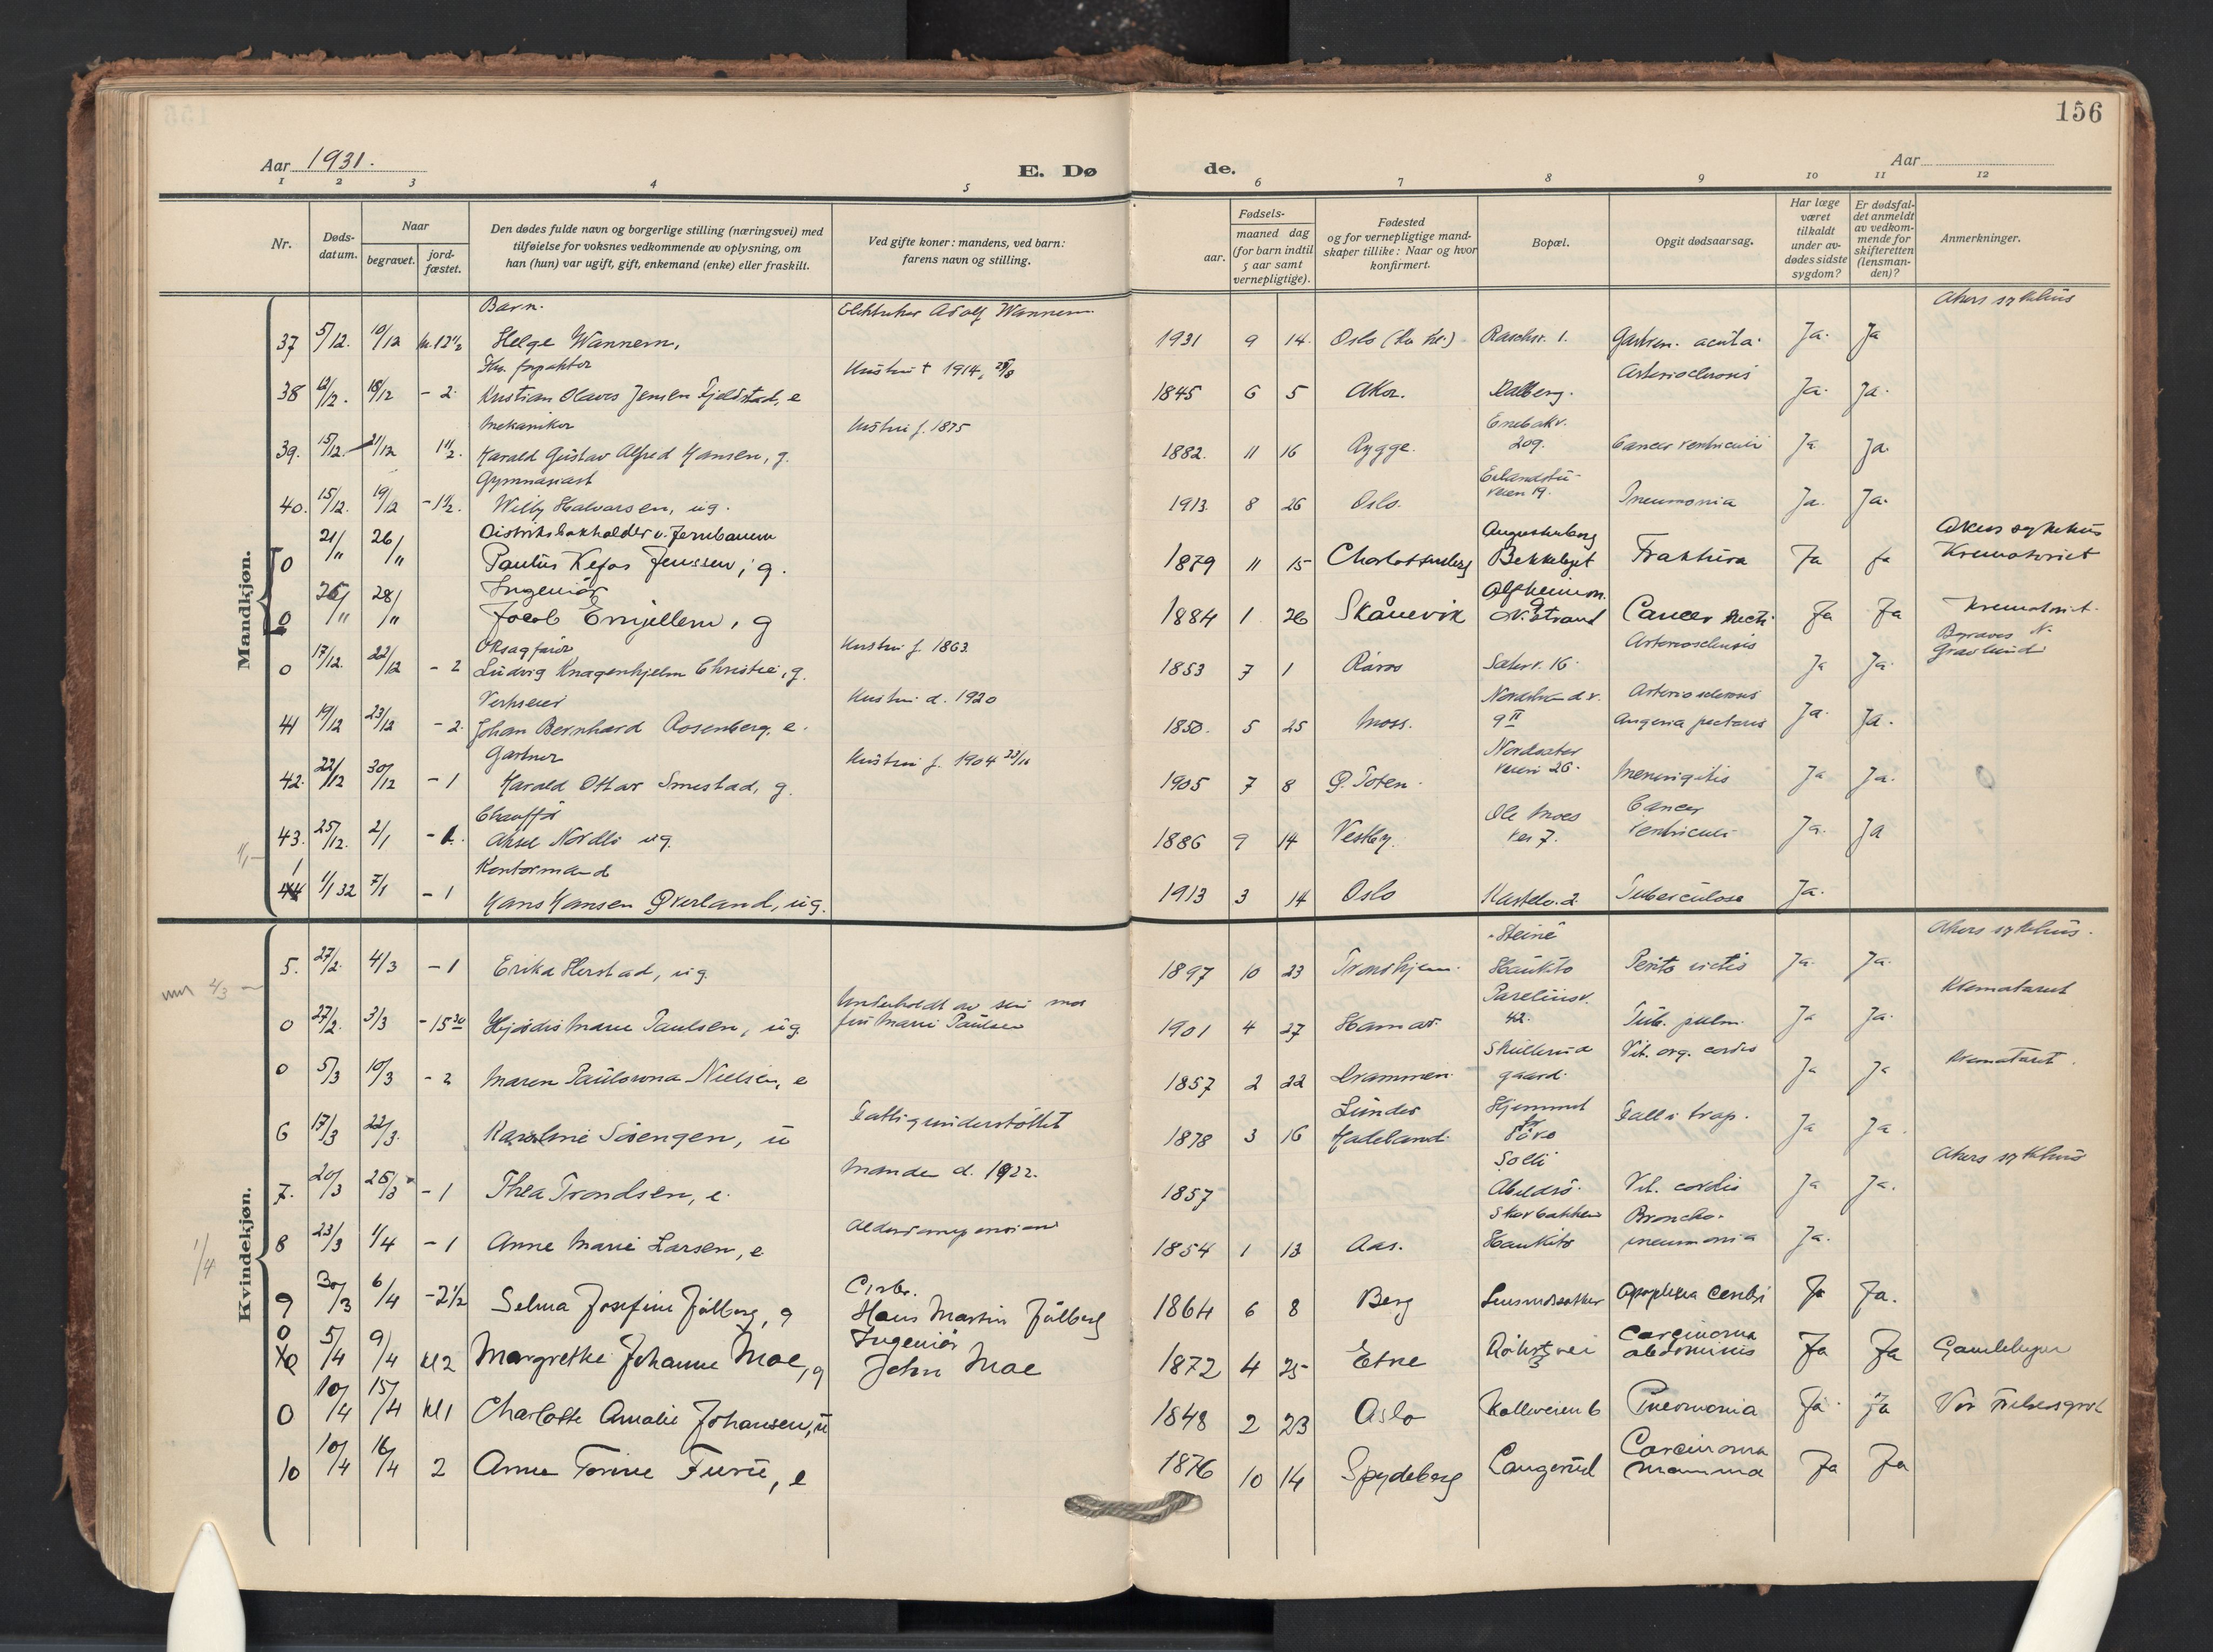 156
Aar 1931.
E. Dø de.
Aar
1 2 3 4 5 6 7 8 9 10 11 12
Nr.
Døds-
datum.
Naar
begravet.
jord-
fæstet.
Den dødes fulde navn og borgerlige stilling (næringsvei) med
tilføielse for voksnes vedkommende av oplysning, om
han (hun) var ugift, gift, enkemand (enke) eller fraskilt.
Ved gifte koner: mandens, ved barn:
farens navn og stilling.
Fødsels-
aar.
maaned dag
(for barn indtil
5 aar samt
vernepligtige).
Fødested
og for vernepligtige mand-
skaper tillike: Naar og hvor
konfirmert.
Bopæl.
Opgit dødsaarsag.
Har læge
været
tilkaldt
under av-
dødes sidste
sygdom?
Er dødsfal-
det anmeldt
av vedkom-
mende for
skifteretten
(lensman-
den)?
Anmerkninger.
Mandkjøn.
Barn. Adolf Wannem Akers sykehus
37 5/12. 10/12 Helge Wannem, 1931 9 14 Oslo 1. acuta. Ja. Ja
Hustru † 1914, Arteriosclerosis
38 12/12. 18/12 - 2 Kristian Olaves Jensen Fjeldstad, e 1845 6 5 Aker. Ja. Ja.
Mekaniker Hustru f. 1875 Enebakv.
39. 15/12. 21/12 1 1/2. Harald Gustav Alfred Hansen, g. 1882. 11 16 Rygge. 209. Cancer ventriculi Ja Ja.
Gymnasiast
40. 15/12. 19/12 - 1 1/2. Willy Halvorsen, ug. 1913 8 26 Oslo. veien 19. Pneumonia Ja. Ja.
v. Jernbanen Akers sykehus
0 21/" 26/" Paulus Kefas Jenssen, g. 1879 11 15 Charlottenberg Bekkelaget Fraktura Ja Ja Krematoriet
Ingeniør
0 26/" 28/" Jacob Emjellem, g 1884 1 26 Skånevik N. Strand Cancer recti Ja Ja Krematoriet.
Hustru f. 1863 Arteriosclerosis
0 17/12. 22/12 - 2 Ludvig Knagenhjelm Christie, g. 1853 7 1 Røros Ja Ja Gravlund
Verkseier Hustru d. 1920 Arteriosclerosis
41 19/12 23/12 - 2 Johan Bernhard Rosenberg, e. 1850. 5 25 Moss. 9 II Angina pectoris Ja. Ja.
Gartner Hustru f. 1904 Nordsæter
42. 22/12 30/12 - 1 Harald Ottar Smestad, g. 1905 7 8 Ø. Toten. veien 26. Meningitis Ja Ja.
Chauffør Ole Moes Cancer
43. 25/12. 2/1 Aksel Nordli ug. 1886 9 14 Vestby. vei 7. ventriculi Ja. Ja
Kontormand
1 44 1/1 32 7/1 - 1 Hans Hansen Øverland, ug. 1913 3 14 Oslo Kastelv. 2 Tuberculose Ja.
Kvindekjøn.
Akers sykehus.
5. 27/2. 4/3 - 1 Erika Herstad, ug. 1897 10 23 Trondhjem. Hauketo Peritonitis Ja. Ja.
Underholdt av sin mor Krematoriet
0 27/2. 3/3 - 15 30 Hjørdis Marie Paulsen, ug. fru Marie Paulsen 1901 4 27 Hamar. 42. Tub. pulm. Ja Ja.
Skullerud Vit. org. cordis Krematoriet.
0 5/3 10/3 - 2 Maren Paulowna Nielsen, e 1857 2 22 Drammen. gaard. Ja Ja
Fattigunderstøttet Lunder Hjemmet for
6 17/3 22/3. Karoline Søengen, u 1878 3 16 Hadeland. Døve Fall i trap. Ja Ja.
Manden d. 1922. Solli Akers sykehus
7. 20/3 26/3 - 1 Thea Trondsen, e. 1857 Abildsø. Vit. cordis Ja Ja.
Broncho-
8 23/3 1/4 - 1 Anne Marie Larsen, e 1854 1 13 Aas. Hauketo pneumonia Ja.
9 30/3 6/4 - 2 1/2 Selma Josefine Jålberg, g Hans Martin Jålberg 1864 6 8 Berg Apoplexia cerebri Ja Ja.
Ingeniør Carcinoma
0 5/4 9/4 kl 2 Margrethe Johanne Moe, g John Moe 1872 4 25 Etne 3 abdominis Ja Ja Gamlebyen
0 10/4 15/4 kl 1 Charlotte Amalie Johansen, u 1848 2 23 Oslo Kolleveien 6 Pneumonia Ja. Ja Vor Frelsers gravl
Carcinoma
10 10/4 16/4 2 Anne Torine Furu, e 1876 10 14 Spydeberg Langerud mamma Ja Ja
1/4